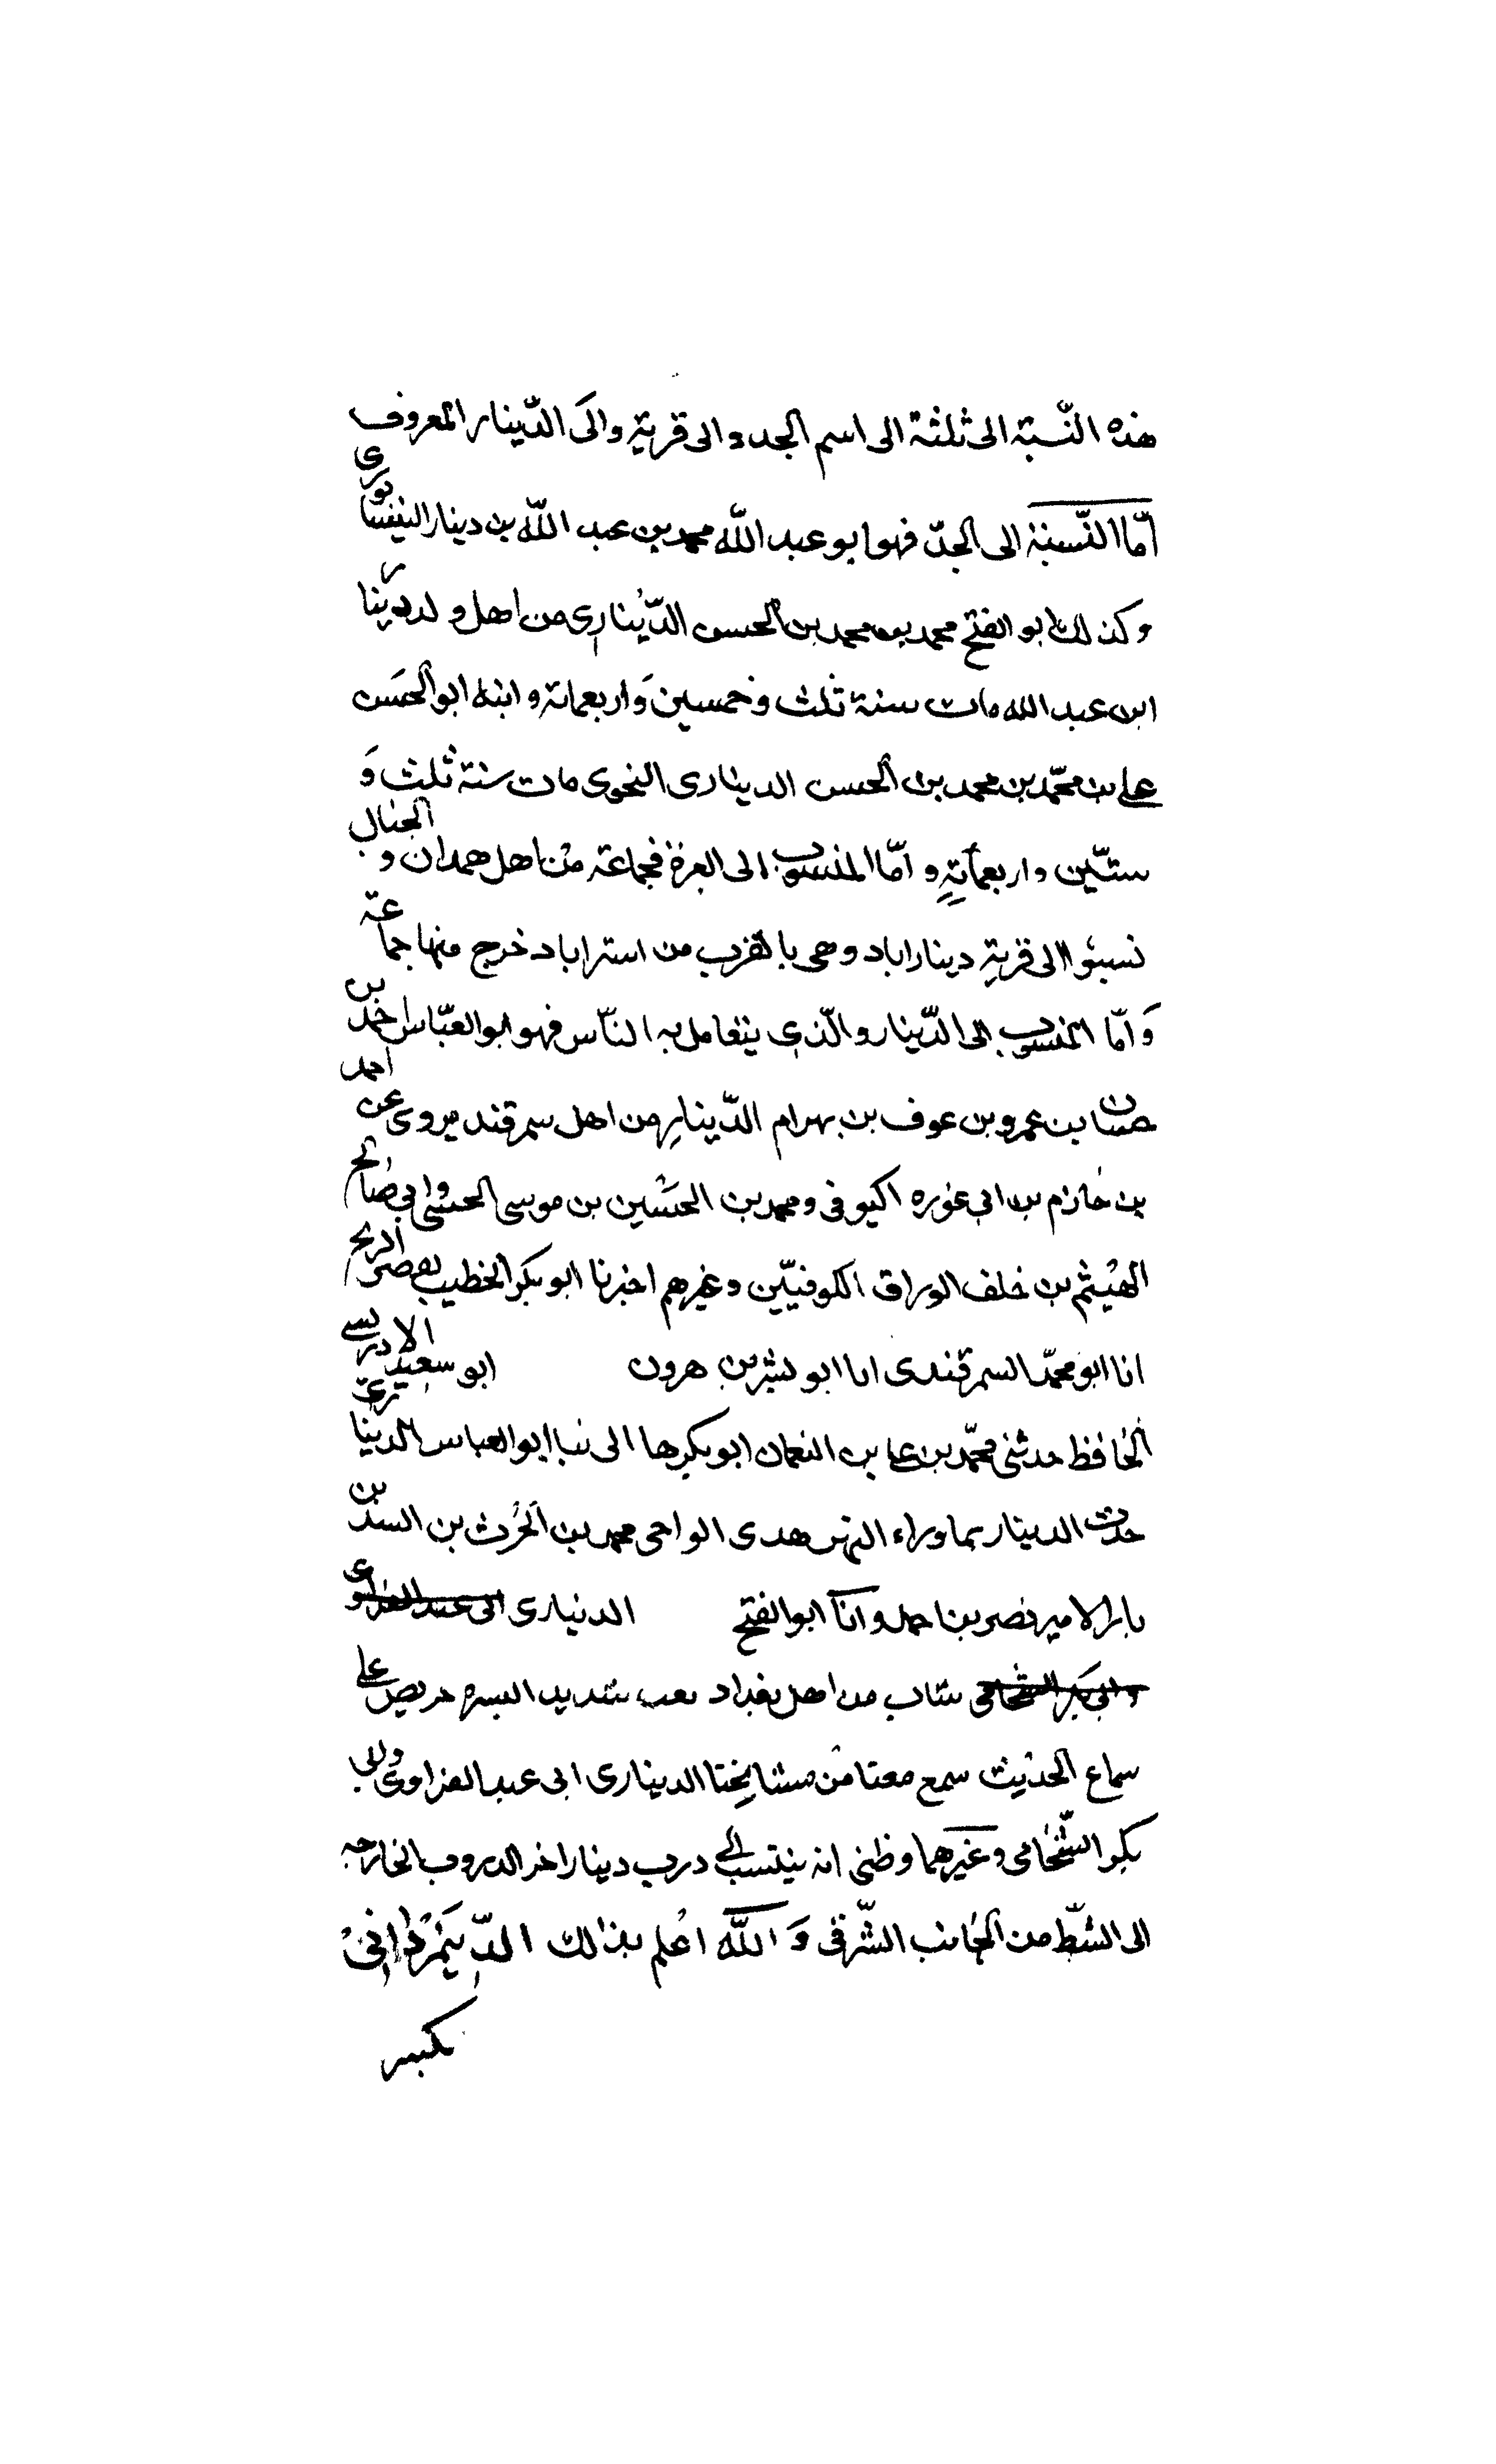 هذه النّسبة الى ثلثة الى اسم الجد والى قرية والَى الدّينار المعروف
امّا النّسبة الى الجدّ فهو ابو عبد اللّه محمد بن عبد اللّه بن دينار النيفسابورى
وكذلك ابو الفتح محمد بن محمد بن الحسن الدّينارى من اهل ولد دينار
ابن عبد الله مات سنة ثلث وخمسين وَاربعماىة وابنه ابو الحسَن
على بن محمّد بن محمد بن الحسن الدينارى النحوى مات سنة ثلث وَ
ستّين واربعمآىةٍ و امّا المنسوب الى القرية فجماعة من اهل همدان و الجبال
نسبوا الى قريةِ دينار اباد وهى بالقرب من استراباد خرج منها جماعة
وَامّا المنسوب الى الدّينار والّذى يتعامل به النّاس فهو ابو العبّاس احمد بن
حسان بن عمرو بن عوف بن بهرام الدّينارِ من اهل سمرقند يروى عن احمد
بن خازم بن ابى غوره الكوفى ومحمد بن الحسَين بن موسى الحسى وابى صالح
الهيثم بن خلف الوراق الكوفيّين وغيرهم اخبرنا ابو بكر الخطيب بقصر الريح
انا ابو محمّد السمرقندى انا ابو بشر بن هرون ابو سعيد الادريسى
الحافظ حدثنى محمّد بن على بن النعمان ابو بكر ها الى نبا ابو العباس الدينا
حدث الدينار بما وراء النهر هدى الواحى محمد بن الحرث بن السد بن
بابر الامير نصر بن احمد وانا ابو الفتح الدنيارى الى عبد الفراوى
وابى بكر الشحامى شاب من اهل بغداد شديد السيره حريص على
سماع الحديث سمع معنا من مشايخنا الدينارى ابى عبد الفراوى وابى
بكر الشّحّامى وغيرهما وظنى انه ينتسب الى درب دينار اخر الدروب الخارجه
الى الشطّ من الجانب الشّرقى وَ اللّه اعلم بذالك الدّيَمَرْدَانِىْ